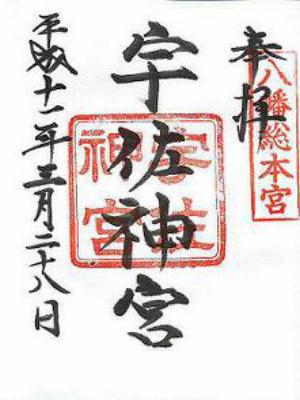 奉拝
八幡総本宮
宇佐神宮
宇佐神宮
平成十一年三月二十八日